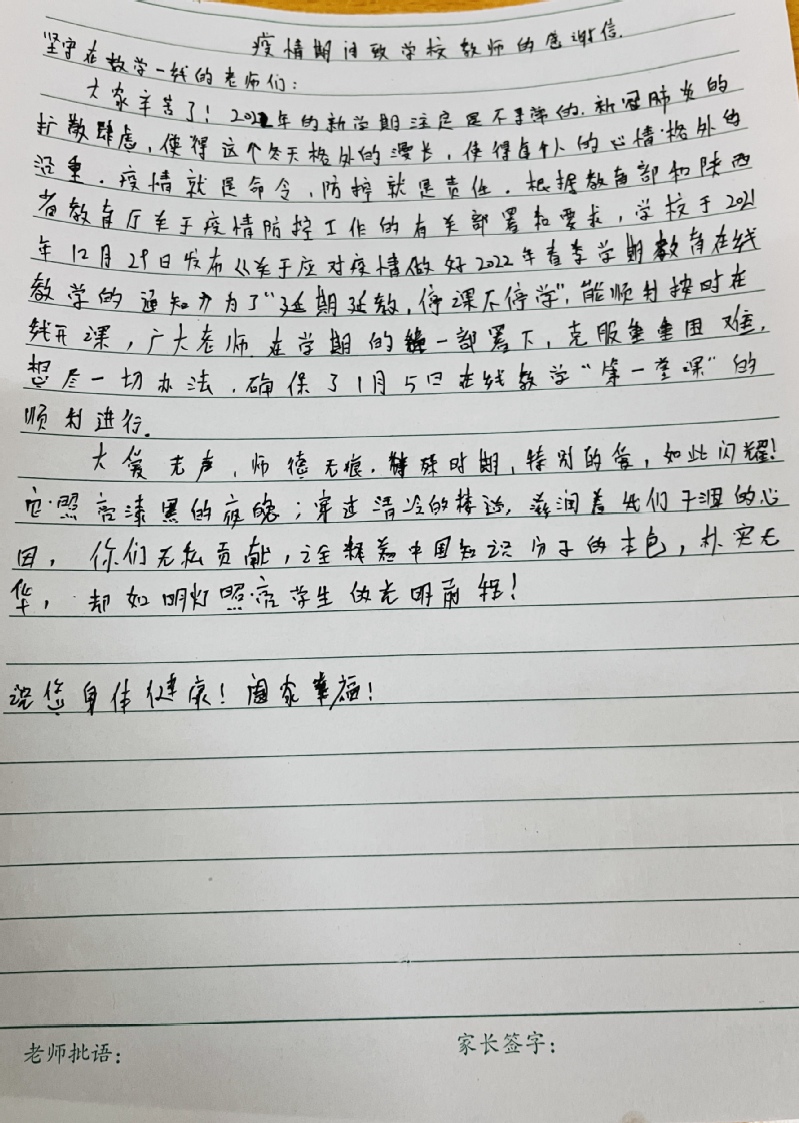 疫情期间致学校教师的感谢信.
坚守在教学一线的老师们:
大家辛苦了! 2022年的新学期注定是不寻常的.新冠肺炎的
扩散肆虐,使得这个冬天格外的漫长,使得每个人的心情格外的
沉重.疫情就是命令,防控就是责任.根据教育部和陕西
省教育厅关于疫情防控工作的有关部署和要求,学校于2021
年12月29日发布《关于应对疫情做好2022年春季学期教育在线
教学的通知》为了“延期延教,停课不停学”,能顺利按时在
线开课,广大老师.在学期的统一部署下,克服重重困难,
想尽一切办法.确保了1月5日在线教学“第一堂课”的
顺利进行.
大爱无声,师德无痕.特殊时期,特别的爱,如此闪耀!
它照亮漆黑的夜晚;穿过清冷的楼道,滋润着我们干涸的心
田,你们无私贡献,诠释着中国知识分子的本色,朴实无
华,却如明灯照亮学生的光明前程!
祝您身体健康!阖家幸福!
老师批语:
家长签字: